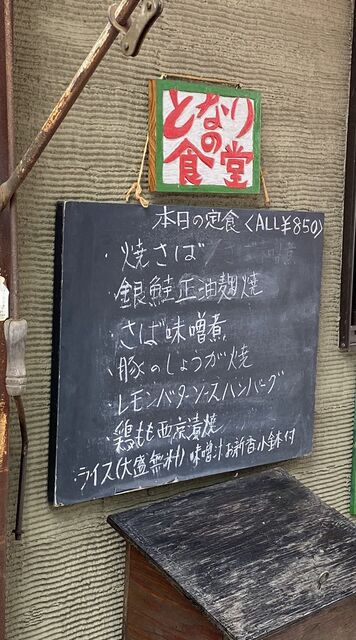 となりの
食堂
本日の定食〈ALL¥850〉
・焼さば
・銀鮭正油麹焼
・さば味噌煮
・豚のしょうが焼
・レモンバターソースハンバーグ
・鶏もも西京漬焼
・ライス(大盛無料)味噌汁お新香小鉢付